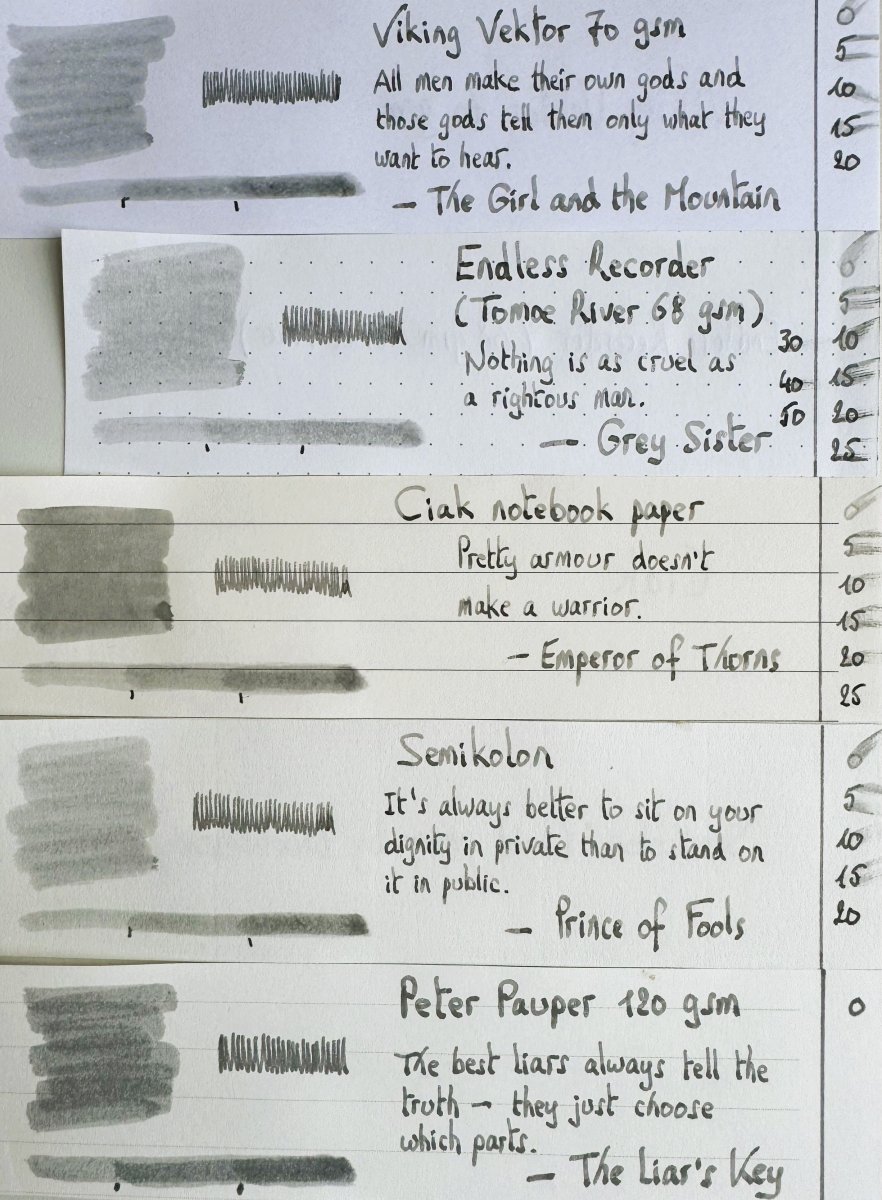 Viking Vektor 70 gsm
All men make their own gods and
those gods tell them only what they
want to hear.
— The Girl and the Mountain
0
5
10
15
20
Endless Recorder
(Tomoe River 68 gsm)
Nothing is as cruel as
a rightous man.
— Grey Sister
0
5
10
15
20
25
30
40
50
Ciak notebook paper
Pretty armour doesn't
make a warrior.
— Emperor of Thorns
0
5
10
15
20
25
Semikolon
It's always better to sit on your
dignity in private than to stand on
it in public.
— Prince of Fools
0
5
10
15
20
Peter Pauper 120 gsm
The best liars always tell the
truth — they just choose
which parts.
— The Liar's Key
0